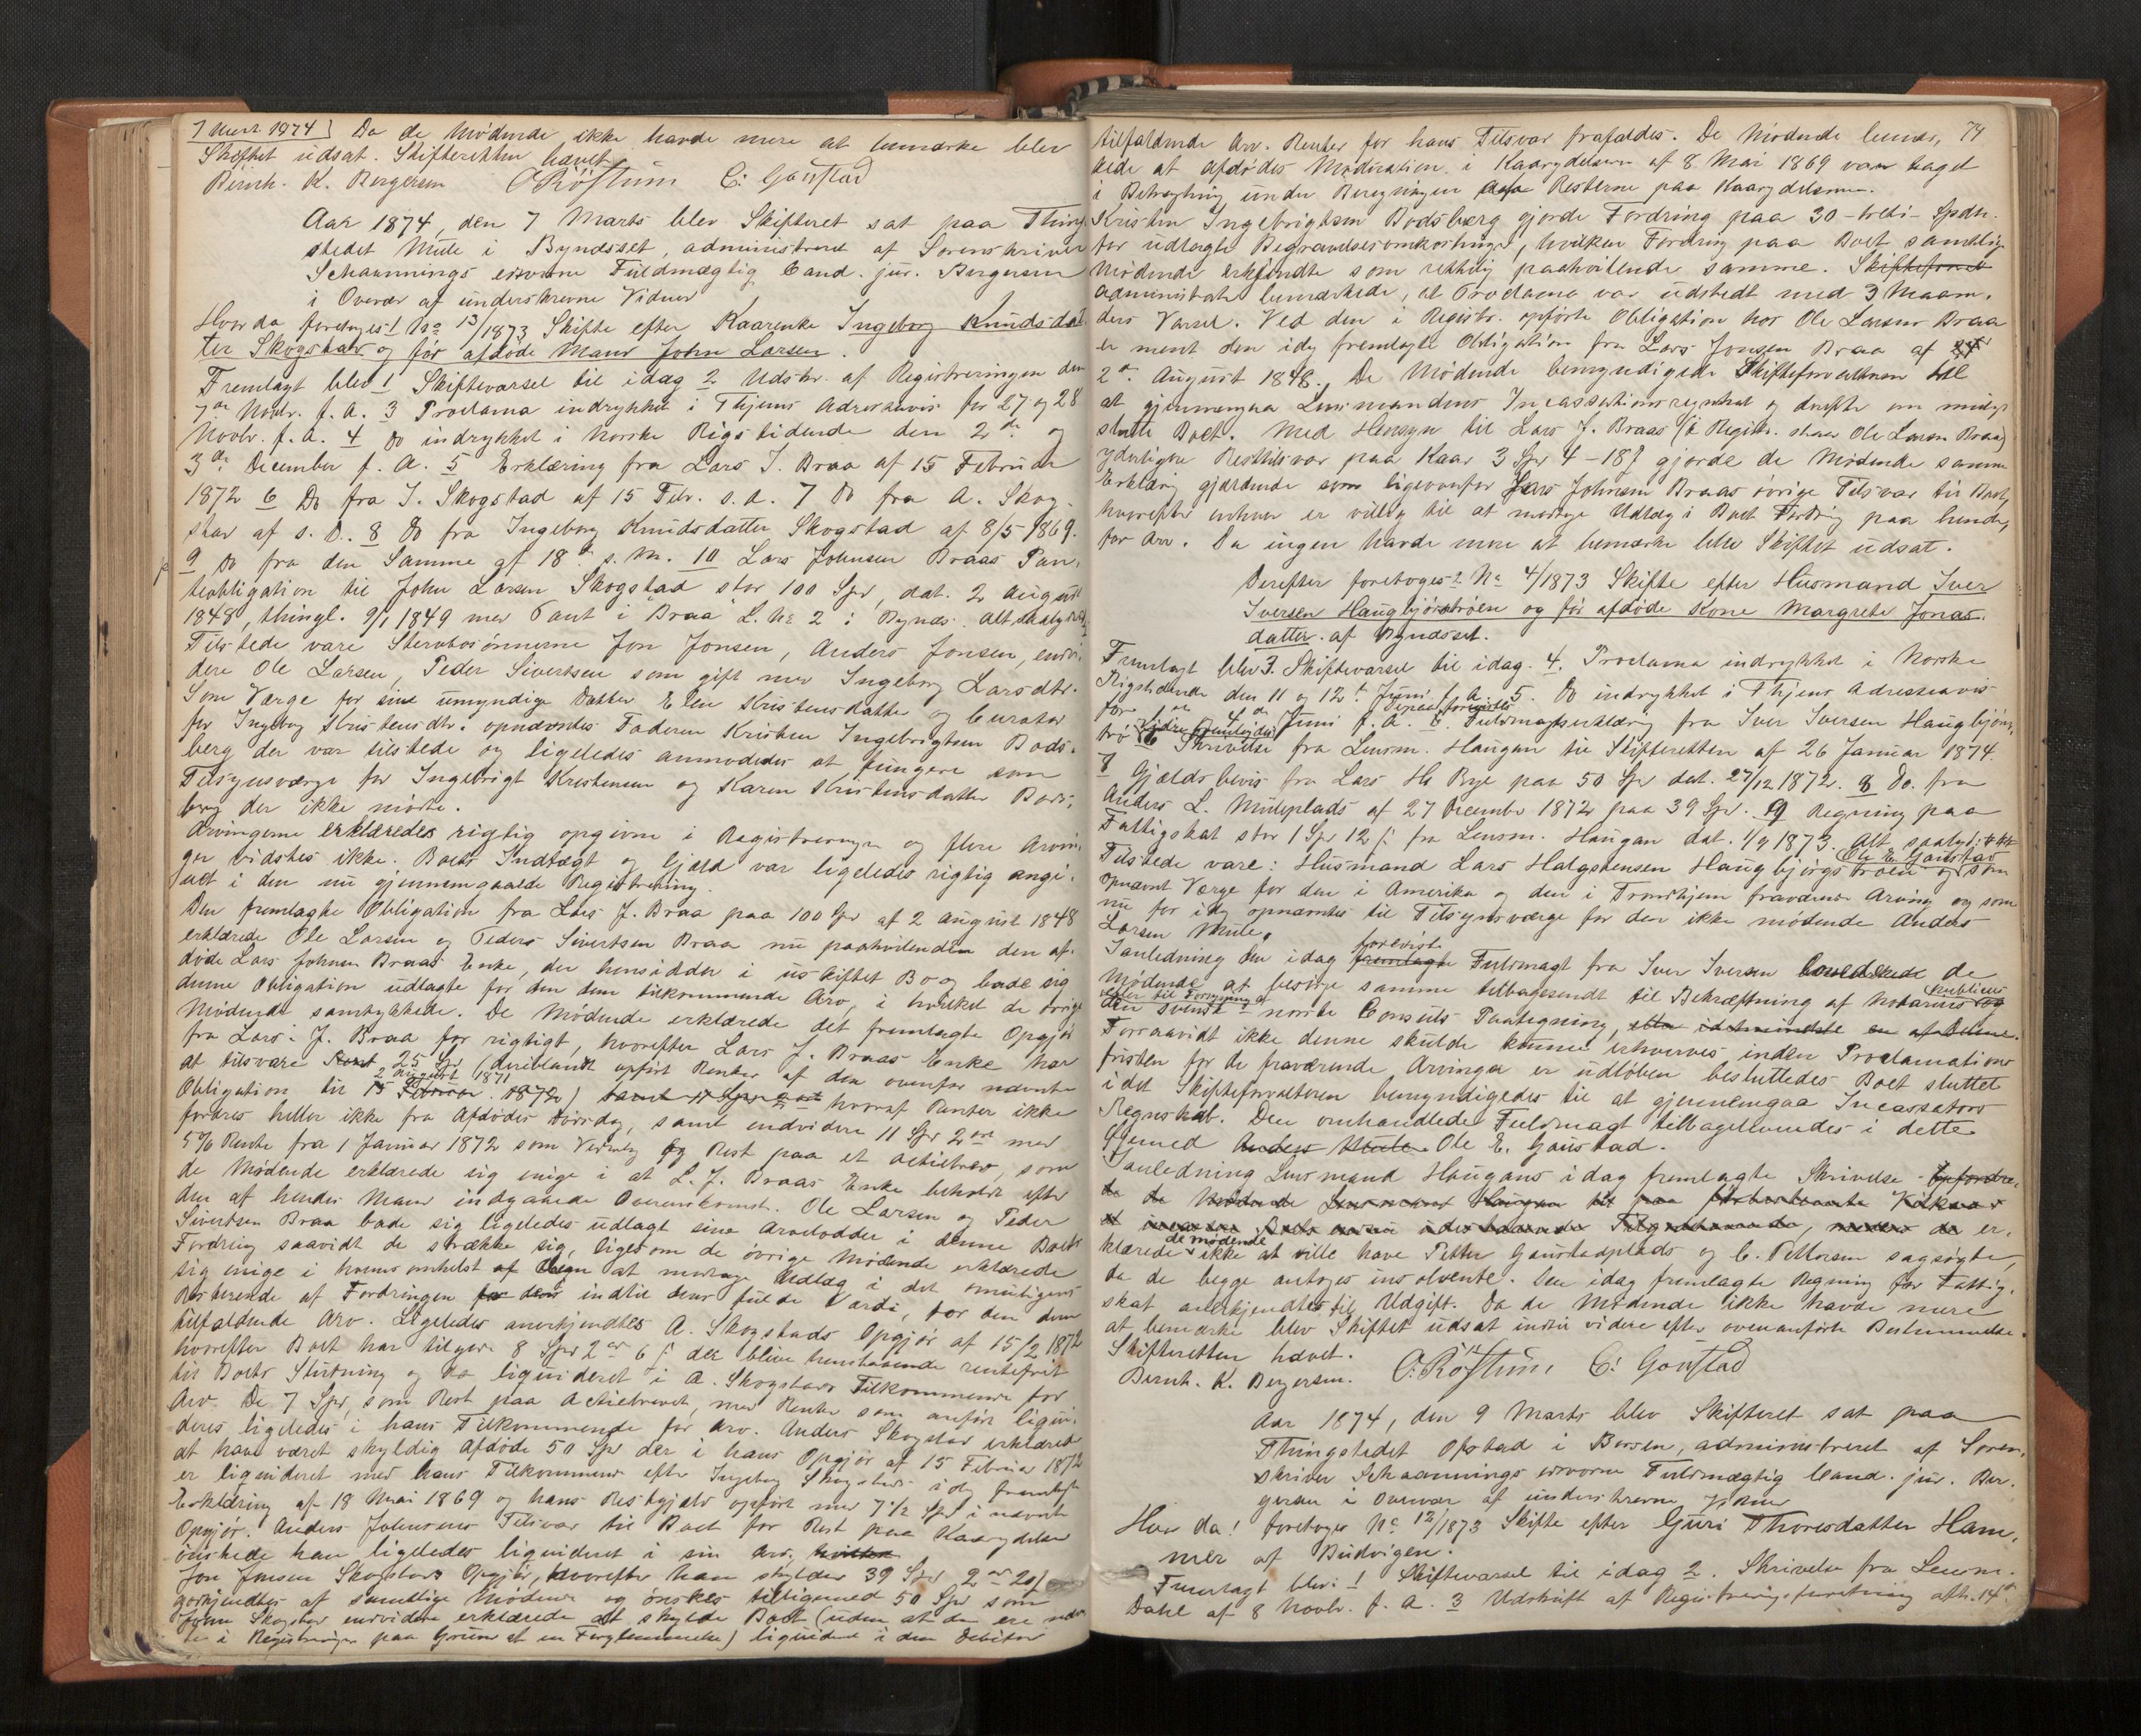 7 Marts 1874] Da de Mødende ikke havde mere at bemærke blev
Skiftet udsat. Skifteretten hævet
Bernh. K. Bergersen O Röstum E: Gaustad
Aar 1874, den 7 Marts blev Skifteret sat paa Thing-
stedet Mule i Bynæsset, administreret af Sorenskriver
Schaannings edsvorne Fuldmægtig Cand. jur. Bergersen
i Overvær af underskrevne Vidner
Hvor da foretoges 1 No 13/1873 Skifte efter Kaarenke Ingeborg Knudsdat-
ter Skogstad og før afdøde Mand John Larsen.
Fremlagt blev 1 Skiftevarsel til idag 2 Udskr. af Registreringen den
7de Novbr. f. A. 3 Proclama indrykket i Thjems Adresseavis for 27 og 28
Novbr. f. A. 4 Do indrykket i Norske Rigstidende den 2de og
3die December f. A. 5 Erklæring fra Lars J. Braa af 15 Februar
1872 6 Do fra J. Skogstad af 15 Febr. s. A. 7 Do fra A. Skog-
stad af s. D. 8 Do fra Ingeborg Knudsdatter Skogstad af 8/5 1869.
9 Do fra den Samme af 18de s. M. 10 Lars Johnsen Braas Pan-
teobligation til John Larsen Skogstad stor 100 Spd, dat. 2 August
1848, thingl. 9/1 1849 med Pant i Braa L. No 2 i Bynæs. alt saalyd
Tilstede vare Stervbosønnerne Jon Jonsen, Anders Jonsen, endvi-
dere Ole Larsen, Peder Sivertsen som gift med Ingeborg Larsdtr.
Som Værge for sine umyndige Datter Elen Kristensdatter og Curator
for Ingeborg Kristensdtr. opnævntes Faderen Kristen Ingebrigtsen Bods-
berg der var tilstede og ligeledes anmodedes at fungere som
Tilsynsværge for Ingebrigt Kristensen og Karen Kristensdatter Bods-
berg der ikke mødte.
Arvingerne erklæredes rigtig opgivne i Registreringen og flere Arvin-
ger vidstes ikke. Boets Indtægt og Gjæld var ligeledes rigtig angi-
vet i den nu gjennemgaaede Registrering.
Den fremlagte Obligation fra Lars J. Braa paa 100 Spd af 2 August 1848
erklærede Ole Larsen og Peders Sivertsen Braa nu paahvilende den af-
døde Lars Johnsen Braas Enke, der hensidder i uskiftet Bo og bade sig
denne Obligation udlagte for den dem tilkommende Arv, i hvilket de øvrige
Mødende samtykkede. De Mødende erklærede det fremlagte Opgjør
fra Lars J. Braa for rigtigt, hvorefter Lars J. Braas Enke har
at tilsvare 25 Spd (deriblandt opført Renter af den ovenfor nævnte
2 August 1871
Obligation til 15 Februar 1872) hvoraf Renter ikke
fordres heller ikke fra Afdødes Dødsdag, samt endvidere 11 Spd 2 ort med
5 % Rente fra 1 Januar 1872 som Rest paa et Actiebrev, som
de Mødende erklærede sig enige i at L. J. Braas Enke beholdt efter
den af hendes Mand indgaaede Overenskomst. Ole Larsen og Peder
Sivertsen Braa bade sig ligeledes udlagt sine Arvelodder i denne Boets
Fordring saavidt de strække sig, ligesom de øvrige Mødende erklærede
sig enige i at modtage Udlæg i det muligens
Resterende af Fordringen for den indtil dens fulde Værdi, for den dem
tilfaldende Arv. Ligeledes anerkjendtes A. Skogstads Opgjør af 15/2 1872
hvorefter Boet har tilgode 8 Spd 2 ort 6 s der blive henstaaende rentefrit
til Boets Slutning og da liquideret i A. Skogstads Tilkommende for
Arv. De 7 Spd, som Rest paa Actiebrevet, med Rente som anført liqvi-
deres ligeledes i hans Tilkommende for Arv. Anders Skogstad erklærede
at have været skyldig Afdøde 50 Spd der i hans Opgjør af 15 Februar 1872
er liquideret med hans Tilkommende efter Ingeborg Skogstads idag fremlagte
Erklæring af 18 Mai 1869 og hans Restgjæld opført med 7 1/2 Spd i nævnte
Opgjør. Anders Johnsens Tilsvar til Boet for Rest paa Kaarydelser
ønskede han ligeledes liquideret i sin Arv,
Jon Jonsen Skogstads Opgjør, hvorefter han skylder 39 Spd 2 ort 20 s
godkjendtes af samtlige Mødende og ønskes tilligemed 50 Spd som
Skogstad endvidere erklærede at skylde Boet (uden at den er
i Registreringen paa Grund af en Forglemmelse) liquideret i den Debitor
74
tilfaldende Arv. Renter for hans Tilsvar frafaldes. De Mødende bemær-
kede at Afdødes Moderation i Kaarydelsen af 8 Mai 1869 var taget
i Betragtning under Beregningen af Resterne paa Kaarydelserne.
Kristen Ingebrigtsen Bodsberg gjorde Fordring paa 30 – tredi – Spdlr.
for udlagte Begravelsesomkostninger, hvilken Fordring paa Boet samtlige
Mødende erkjendte som rettelig paahvilende samme. Skifteforv
administrator bemærkede, at Proclama var udstedt med 3 Maane-
ders Varsel. Ved den i Registr. opførte Obligation hos Ole Larsen Braa
er ment den idag fremlagte Obligation fra Lars Jonsen Braa af
2den August 1848. De Mødende bemyndigede Skifteforvalteren til
at gjennemgaa Lensmandens Incassationsregnskab og derefter om muligt
slutte Boet. Med Hensyn til Lars J. Braas (i Registr. staar Ole Larsen Braa)
yderligere Resttilsvar paa Kaar 3 Spd 4 – 18 s gjorde de Mødende samme
Erklæring gjældende som ligeoverfor Lars Johnsen Braas øvrige Tilsvar til Boet,
hvorefter enhver er villig til at modtage Udlæg i Boets Fordring paa hende,
for Arv. Da ingen havde mere at bemærke blev Skiftet udsat.
Derefter foretoges 2 No 4/1873 Skifte efter Husmand Iver
Iversen Haugbjørstrøen og før afdøde Kone Margrete Jonas-
datter af Bynæsset.
Fremlagt blev 3. Skiftevarsel til idag. 4. Proclama indrykket i Norske
Rigstidende den 11 og 12te Juni f. A. 5. Do indrykket i Thjems Adresseavis
for Juni f. A. 6. Fuldmagtserklæring fra Iver Iversen Haugbjørs-
trø 6 Skrivelse fra Lensm. Haugan til Skifteretten af 26 Januar 1874.
7 Gjældsbevis fra Lars Hs Bye paa 50 Spd dat. 27/12 1872. 8 Do. fra
Anders L. Muleplads af 27 December 1872 paa 39 Spd. 9 Regning paa
Fattigskat stor 1 Spd 12 s fra Lensm. Haugan dat. 1/9 1873. Alt saalyd:
Ole E. Gaustad
Tilstede vare: Husmand Lars Halgstensen Haugbjørgstrøen og som
opnævnt Værge for den i Amerika og den i Trondhjem fraværende Arving og som
nu for idag opnævntes til Tilsynsværge for den ikke mødende Anders
Larsen Mule.
foreviste
I anledning den idag fremlagte Fuldmagt fra Iver Iversen de
Mødende at besørge samme tilbagesendt til Bekræftning af Notarius publicus
den svensk-norske Consuls Paategning,
Forsaavidt ikke denne skulde kunne erhverves inden Proclamations-
fristen for de fraværende Arvinger er udløben besluttedes Boet sluttet
idet Skifteforvalteren bemyndigedes til at gjennemgaa Incassators
Regnskab. Den omhandlede Fuldmagt tilbageleveredes i dette
Øiemed Anders Mule Ole E. Gaustad.
I anledning Lensmand Haugans idag fremlagte Skrivelse Opfordre-
de de Mødende Lensmand Haugan til paa
er-
klærede de mødende ikke at ville have Petter Gaustadplads og C. Pettersen sagsøgte,
da de begge antages insolvente. Den idag fremlagte Regning for Fattig-
skat anerkjendtes til Udgift. Da de Mødende ikke havde mere
at bemærke blev Skiftet udsat indtil videre efter ovenanførte Bestemmelse.
Skifteretten hævet.
Bernh. K. Bergersen. O: Röstum, E: Gaustad
Aar 1874, den 9 Marts blev Skifteret sat paa
Thingstedet Opstad i Børsen, administreret af Soren-
skriver Schaannings edsvorne Fuldmægtig Cand. jur. Ber-
gersen i Overvær af underskrevne Vidner
Hvor da! foretoges No 12/1873 Skifte efter Guri Thoresdatter Ham-
mer af Budvigen.
Fremlagt blev: 1 Skiftevarsel til idag 2. Skrivelse fra Lensm.
Dahl af 8 Novbr. f. A. 3 Udskrift af Registreringsforretning afh. 14de